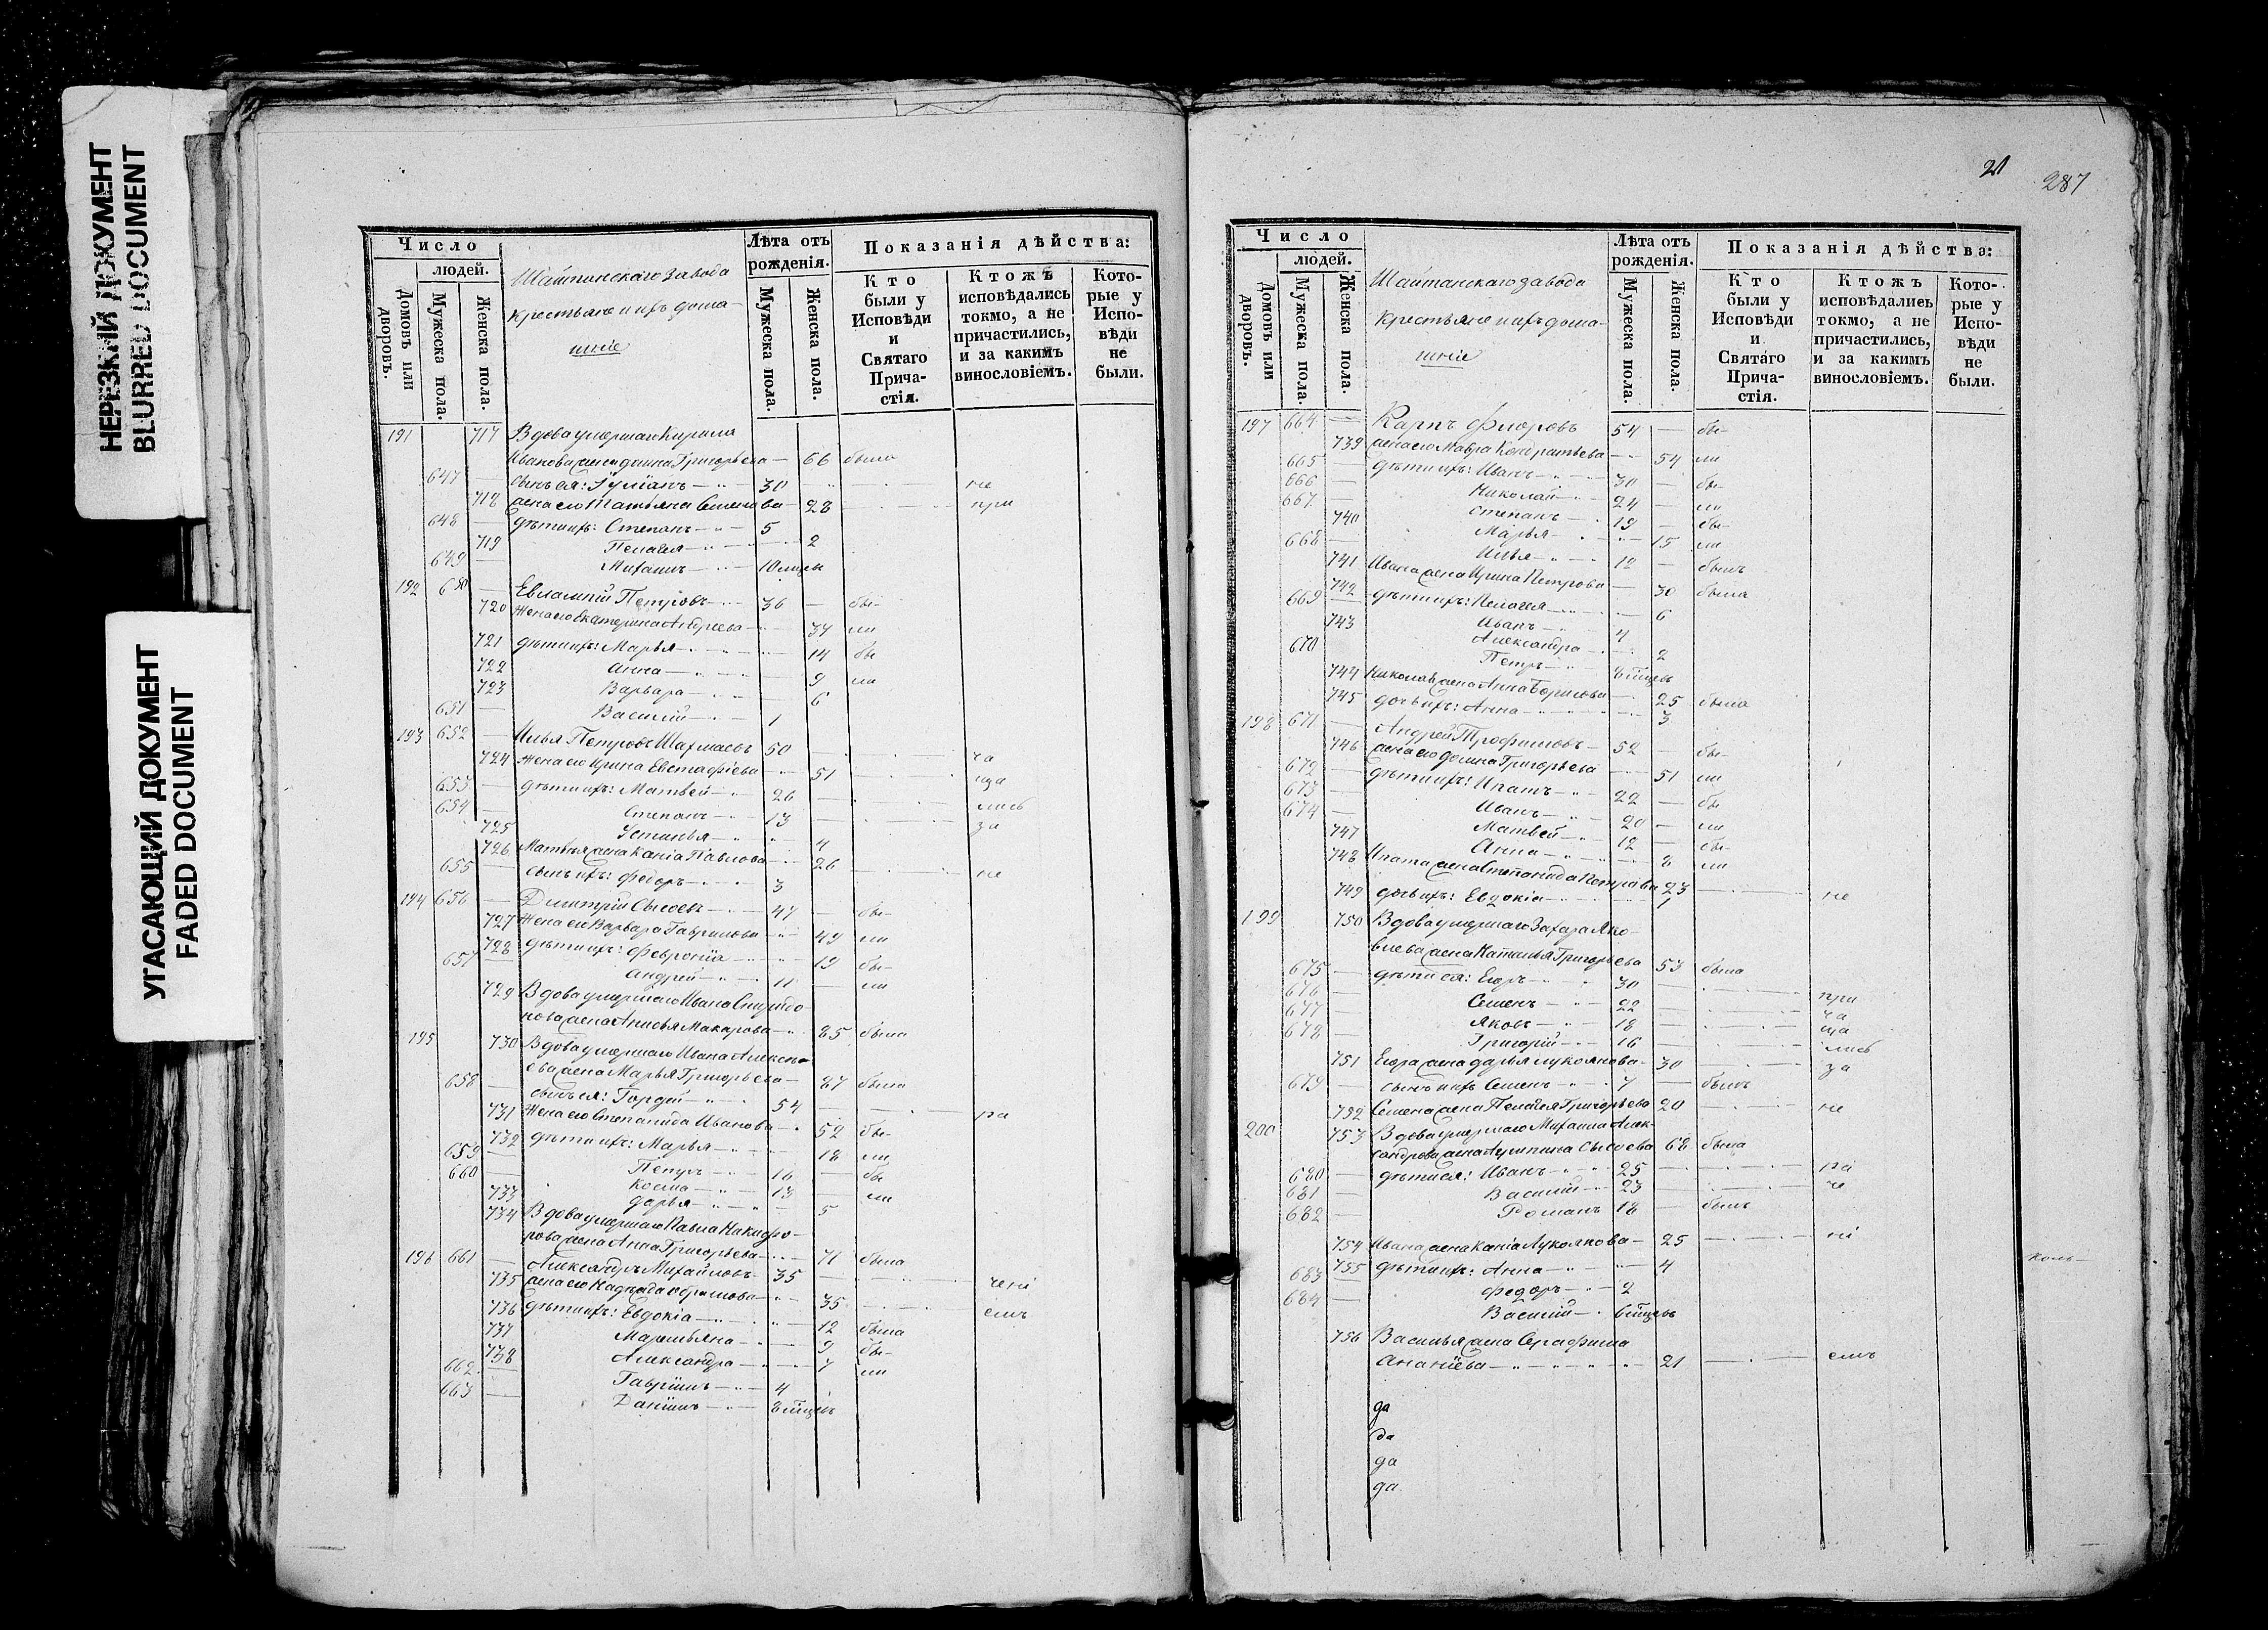 НЕРЕЗКИЙ ДОКУМЕНТ
BLURRED DOCUMENT
УГАСАЮЩИЙ ДОКУМЕНТ
FADED DOCUMENT
Число
людей.
Домовъ или дворовъ.
Мужеска пола.
Женска пола.
Шайтанскаго завода
крестьяне и ихъ дома-
шніе
Лѣта отъ рожденія.
Мужеска пола.
Женска пола.
Показанія дѣйства:
Кто были у Исповѣди и Святаго Прича-стія.
Ктожъ исповѣдались токмо, а не причастились, и за какимъ винословіемъ.
Кото-рые у Испо-вѣди не были.
191 717 Вдова умершаго Кирила
Иванова жена Домна Григорьева 66 была
647 сынъ ея: Іуліанъ 30 не
718 жена его Татьяна Семенова 28 при
648 дѣти ихъ: Степанъ 5
719 Пелагея 2
649 Михаилъ 10 мцевъ
192 650 Евлампій Петровъ 36 бы-
720 Жена его Екатерина Андреева 34 ли
721 дѣти ихъ: Марья 14 бы
722 Анна 9 ли
723 Варвара 6
651 Василій 1
193 652 Илья Петровъ 50 ча
724 Жена его Ирина Евстафіева 51 ща
653 дѣти ихъ: Матвей 26 лись
654 Степанъ 13 за
725 Устинья 4
726 Матвея жена Ксенія Павлова 26 не
655 сынъ ихъ: Федоръ 3
194 656 Димитрій Сысоевъ 47 бы-
727 Жена его Варвара Гаврилова 49 ли
728 дѣти ихъ: Февронія 19 бы-
657 Андрей 11 ли
729 Вдова умершаго Ивана Спиридо-
нова жена Анисья Макарова 85 была
195 730 Вдова умершаго Ивана Алексѣ-
ева жена Марья Григорьева 87 была
658 сынъ ея: Гордей 54 ра
731 Жена его Степанида Иванова 52 бы-
732 дѣти ихъ: Марья 18 ли
659 Петръ 16 бы
660 Косма 13 ли
733 Дарья 5
734 Вдова умершаго Павла Никифо-
рова жена Анна Григорьева 71 была
196 661 Александръ Михайловъ 35 чені
735 жена его Надежда Ефимова 35 емъ
736 дѣти ихъ: Евдокія 12 была
737 Маремьяна 9 бы-
738 Александра 7 ли
662 Гавріилъ 4
663 Даніилъ 8 мцевъ
21
287
Число
людей.
Домовъ или дворовъ.
Мужеска пола.
Женска пола.
Шайтанскаго завода
крестьяне и ихъ дома-
шніе
Лѣта отъ рожденія.
Мужеска пола.
Женска пола.
Показанія дѣйства:
Кто были у Исповѣди и Святаго Прича-стія.
Ктожъ исповѣдались токмо, а не причастились, и за какимъ винословіемъ.
Кото-рые у Испо-вѣди не были.
197 664 Карпъ Флоровъ 54 бы-
739 жена его Мавра Кондратьева 54 ли
665 дѣти ихъ: Иванъ 30 бы-
666 Николай 24 ли
667 Степанъ 19 бы-
740 Марья 15 ли
668 Илья 12 былъ
741 Ивана жена Ирина Петрова 30 была
742 дѣти ихъ: Пелагея 6
669 Иванъ 4
743 Александра 2
670 Петръ 6 мцевъ
744 Николая жена Анна Борисова 25 была
745 дочь ихъ: Анна 3
198 671 Андрей Трофимовъ 52 бы-
746 жена его Домна Григорьева 51 ли
672 дѣти ихъ: Ипатъ 22 бы
673 Иванъ 20 ли
674 Матвей 12 бы-
747 Анна 8 ли
748 Ипата жена Степанида Петрова 23 не
749 дочь ихъ: Евдокія 1
199 750 Вдова умершаго Захара Яко-
влева жена Наталья Григорьева 53 была
675 дѣти ея: Егоръ 30 при
676 Семенъ 22 ча
677 Яковъ 18 ща
678 Григорій 16 лись
751 Егора жена Дарья Лукоянова 30 за
679 сынъ ихъ Семенъ 7 былъ
752 Семена жена Пелагея Григорьева 20 не
200 753 Вдова умершаго Михаила Алек-
сандрова жена Сысоева 68 была
680 дѣти ея: Иванъ 25 ра
681 Василій 23 че
682 Романъ 18 былъ
754 Ивана жена Ксенія Лукоянова 25 ні
755 дѣти ихъ: Анна 4
683 Федоръ 2
684 Василій 6 мцевъ
756 Василья жена Серафима
Ананіева 21 емъ
да
да
да
да